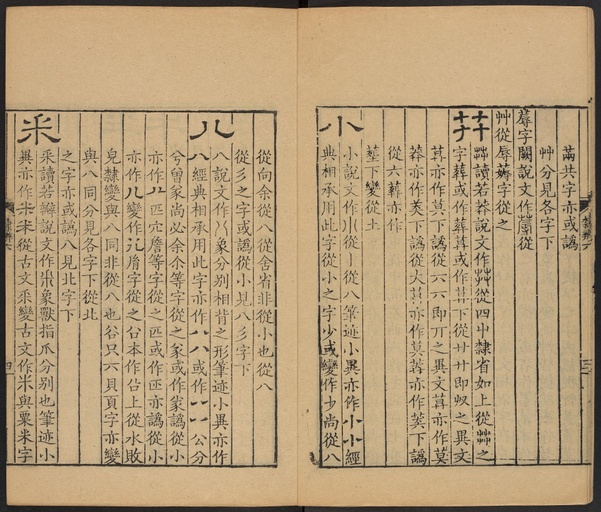 兩共字亦或譌
艸分見各字下
蓐字闕說文作蓐從
艸從辱薅字從之
茻讀若莽說文作茻從四屮隸省如上從艸之
字葬或作葬葬或作下從廾廾即収之異文
其亦作莫下譌從六六即丌之異文葬亦作莫
莽亦作莽下譌從大亦作莽亦作下譌
從六葬亦作
塟下變從土
小
小說文作從丨從八筆迹小異亦作小小經
典相承用此字從小之字少或變作少尚從八
從向余從八從舍省非從小也從八
從彡之字或譌從小見八彡字下
八
八說文作象分別相背之形筆迹小異亦作
八經典相承用此字亦作八八或作公分
兮曾豖尚必余尒等字從之豖或作譌從小
亦作匹穴詹等字從之匹或作匹亦譌從小
亦作八變作脊字從之㕣本作㕣上從水敗
皃隸變與八同非從八也谷只六貝頁字亦變
與八同分見各字下從北
之字亦或譌八見北字下
釆
釆讀若辨說文作釆象獸指爪分別也筆迹小
異亦作釆釆從古文釆變古文作與粟米字
隸辨六
四